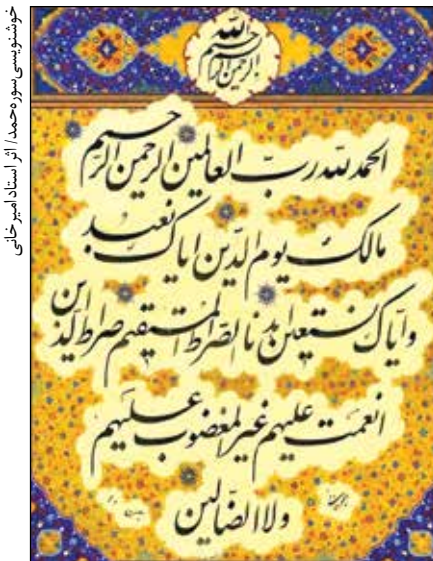 خوشنویسی سوره حمد / اثر استاد امیرخانی
بسم الله الرحمن الرحیم
الحمدلله رب العالمین الرحمن الرحیم
مالک یوم الدین ایاک نعبد
وایاک نستعین اهدنا الصراط المستقیم صراط الذین
انعمت علیهم غیر المغضوب علیهم
ولا الضالین